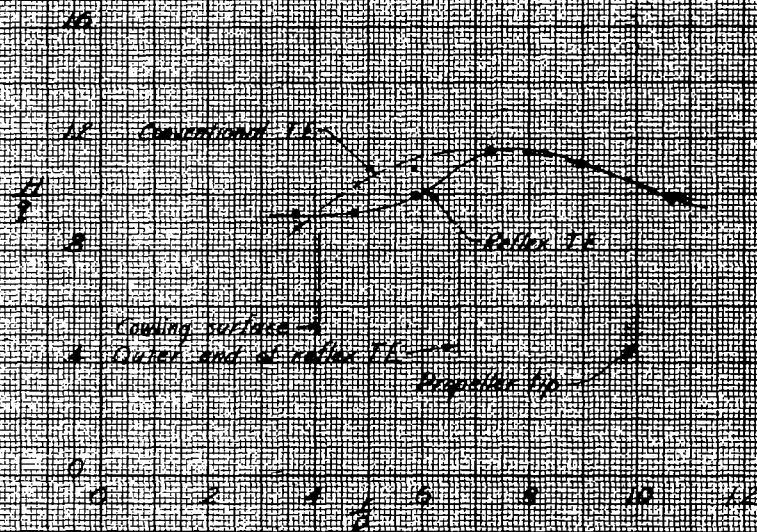 16
12 Conventional T.E.
H
q
8
Reflex T.E.
Cowling surface
4 Outer end of reflex T.E.
Propeller tip
0
0 2 4 6 8 10 12